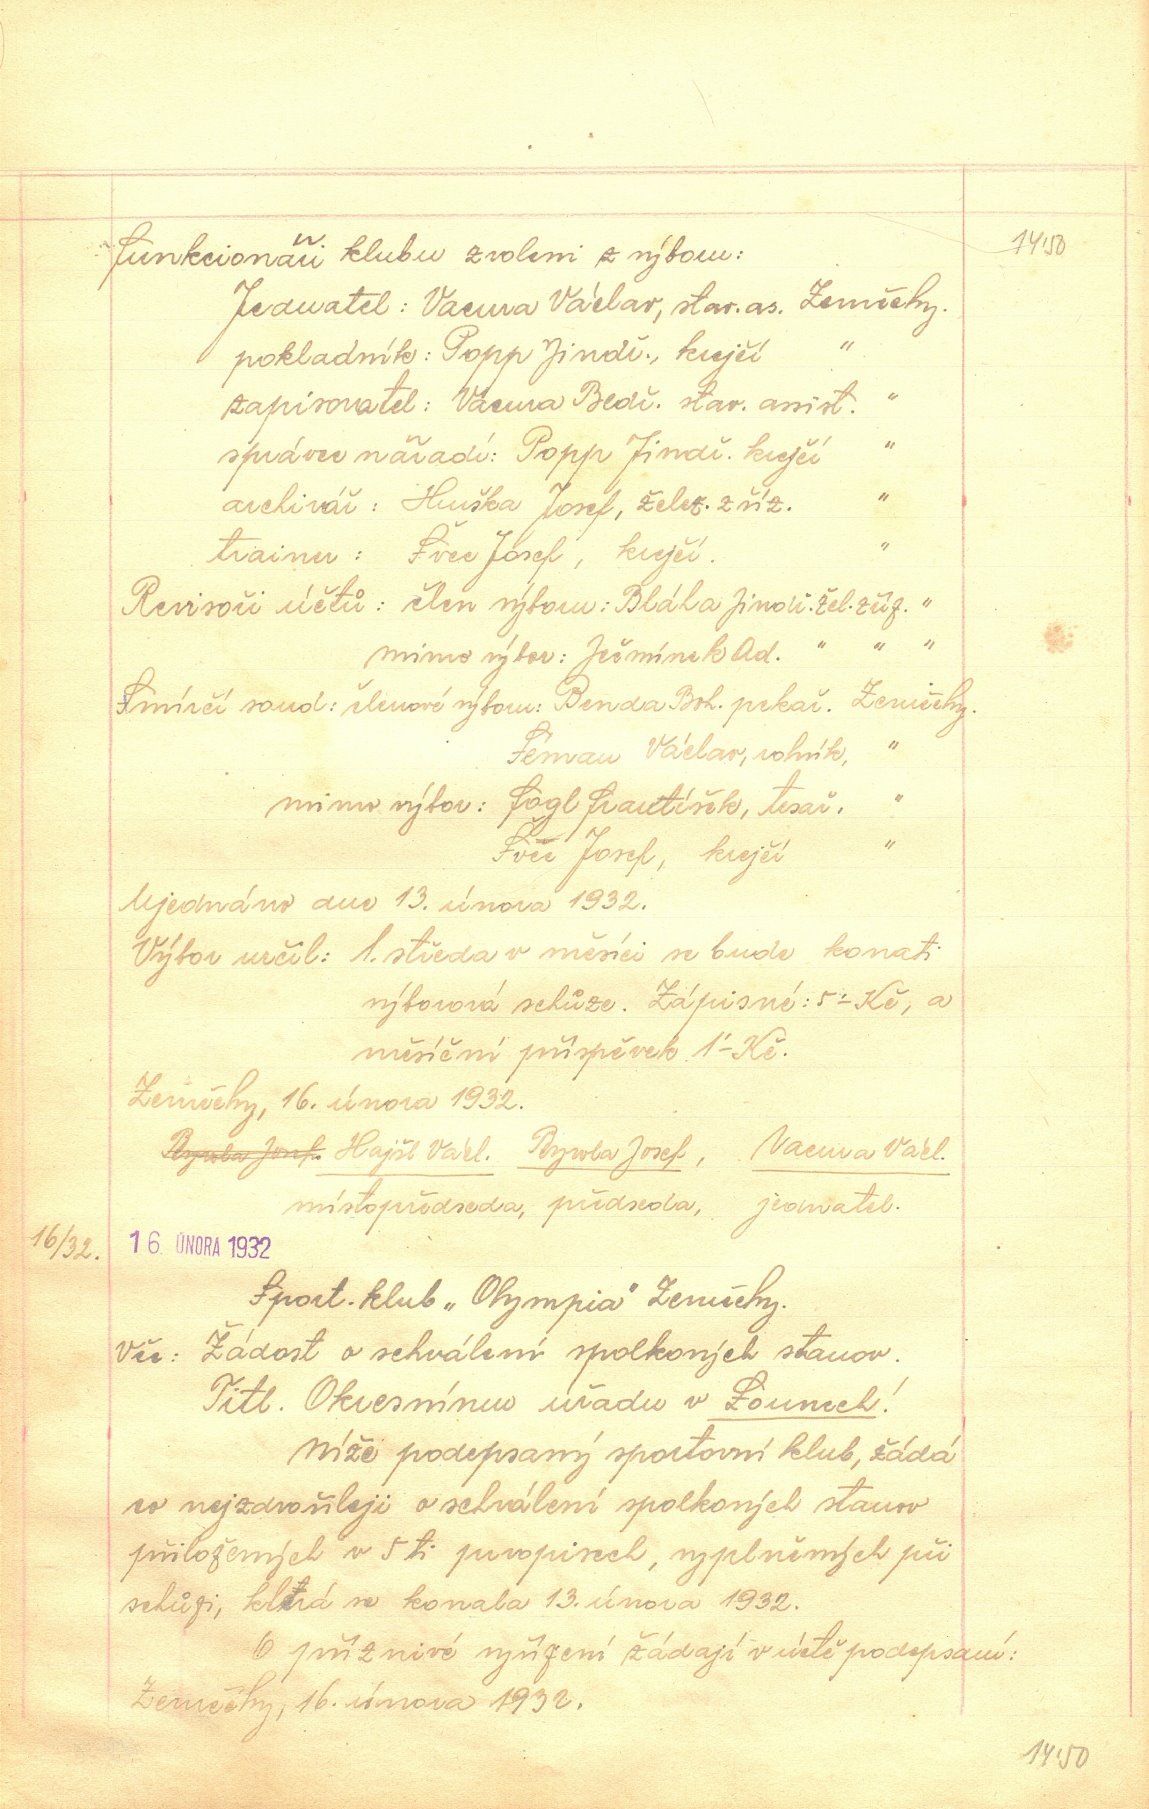 14'50
funkcionáři klubu zvoleni z výboru:
Jednatel: Vacura Václav, stav. as. Zeměchy.
pokladník: Popp Jindř., krejčí "
zapisovatel: Vacura Bedř. stav. assist. "
správce nářadí: Popp Jindř. krejčí "
archivář: Hruška Josef, želez. zříz. "
trainer: Švec Josef, krejčí. "
Revisoři účtů: člen výboru: Bláha Jindř. žel. zříz. "
mimo výbor: Ječmínek Ad. " " "
Smírčí soud: členové výboru: Benda Boh. pekař. Zeměchy.
Václav, rolník, "
mimo výbor: Fógl František, tesař. "
Švec Josef, krejčí "
Ujednáno dne 13. února 1932.
Výbor určil: 1. středa v měsíci se bude konati
výborová schůze. Zápisné: 5'- Kč, a
měsíční příspěvek 1'- Kč.
Zeměchy, 16. února 1932.
Hajšl Václ. Josef, Vacura Václ.
místopředseda, předseda, jednatel.
16/32. 16. ÚNORA 1932
Sport. klub „Olympia" Zeměchy.
Věc: Žádost o schválení spolkových stanov.
Titl. Okresnímu úřadu v Lounech!
Níže podepsaný sportovní klub, žádá
co nejzdvořileji o schválení spolkových stanov
přiložených v 5ti prvopisech, vyplněných při
schůzi, která se konala 13. února 1932.
O příznivé vyřízení žádají v úctě podepsaní:
Zeměchy, 16. února 1932.
14'50